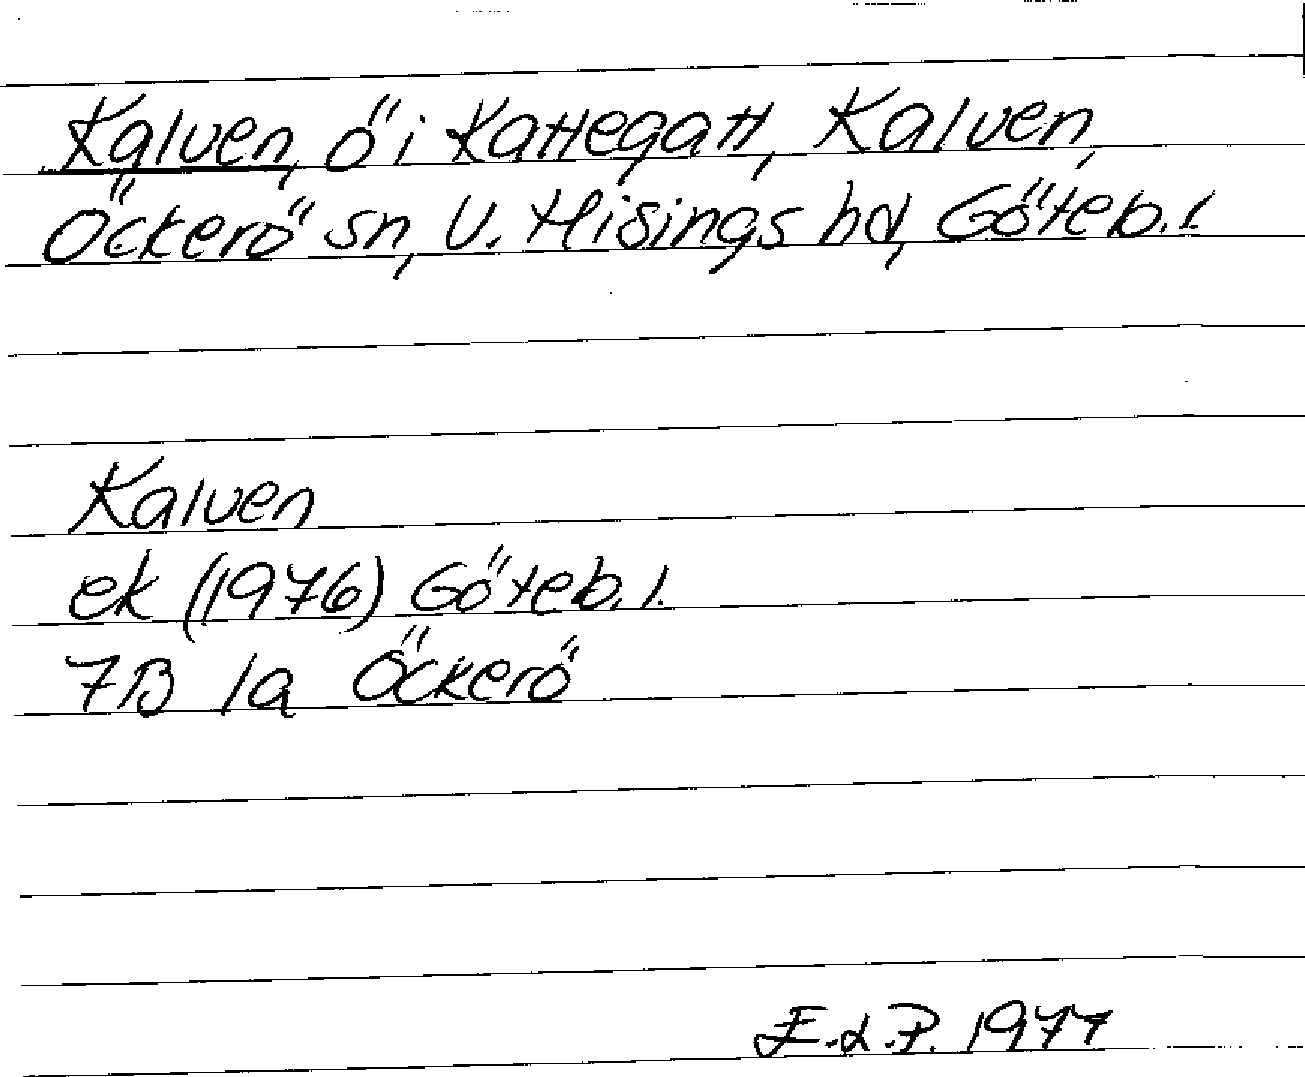 Kalven, ö i Kattegatt, Kalven,
Öckerö sn, V. Hisings hd, Göteb. l.
Kalven
ek (1976) Göteb. l.
7B 1a Öckerö
E.d.P. 1977